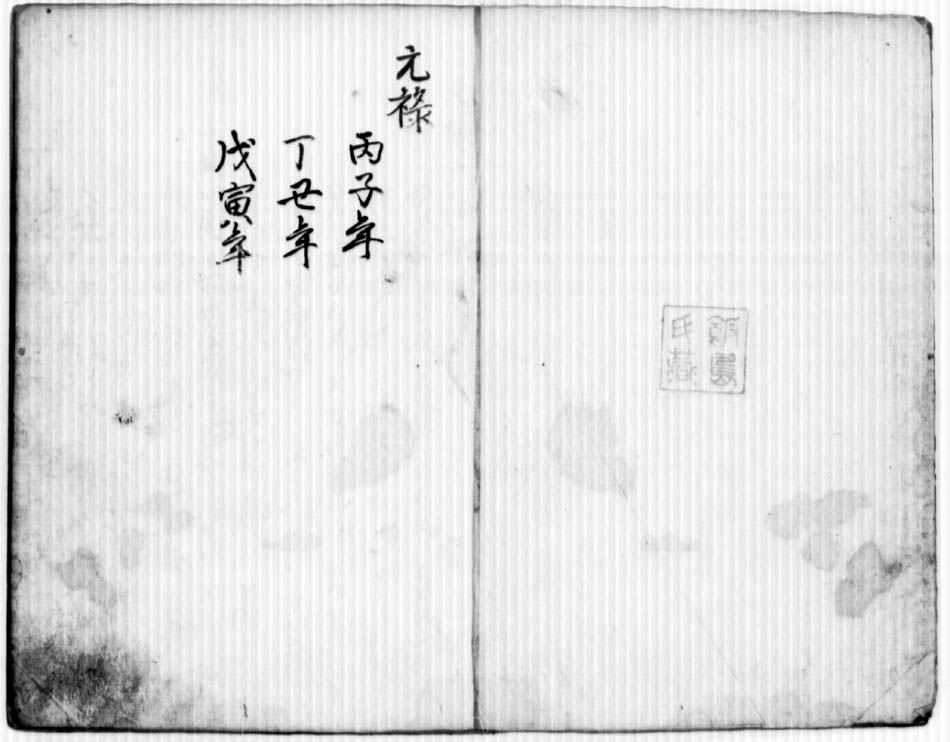 飯島
氏蔵
元禄
丙子年
丁丑年
戊寅年